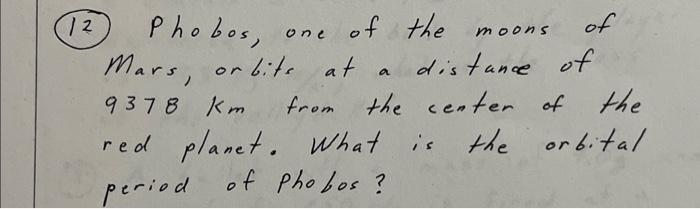 12 Phobos, one of the moons of
Mars, orbits at a distance of
9378 Km from the center of the
red planet. What is the orbital
period of Phobos?